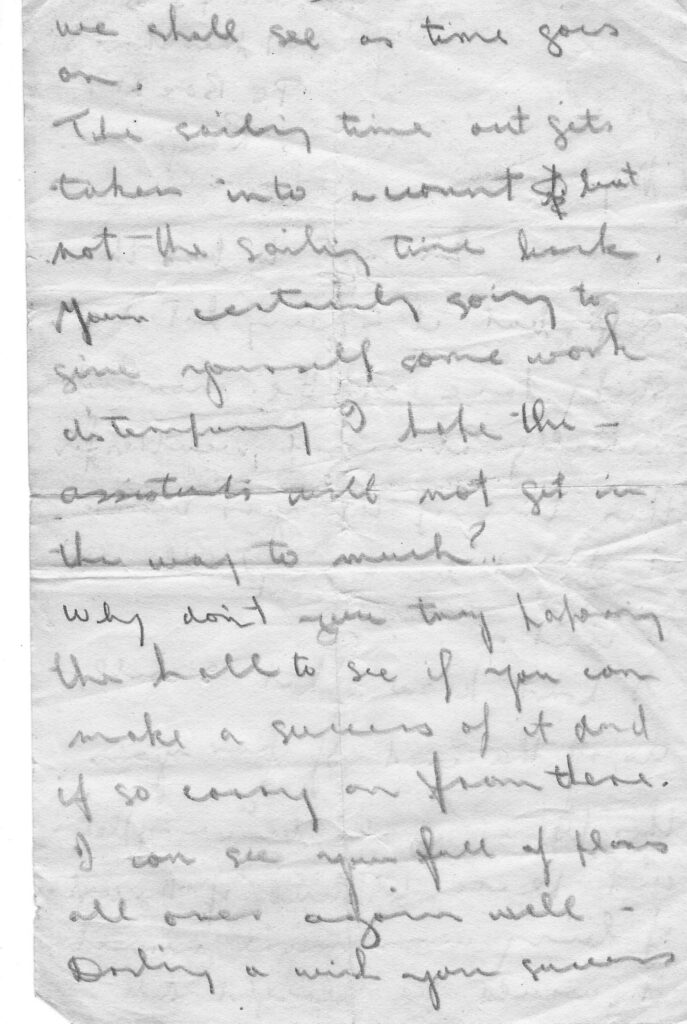 we shall see as time goes
on.
The sailing time out gets
taken into account but
not the sailing time back.
Your certainly going to
give yourself some work
distempering I hope the –
assistants will not get in
the way to much?
Why don't you try papering
the hall to see if you can
make a success of it and
if so carry on from there.
I can see your full of plans
all over again well –
Darling a wish you success